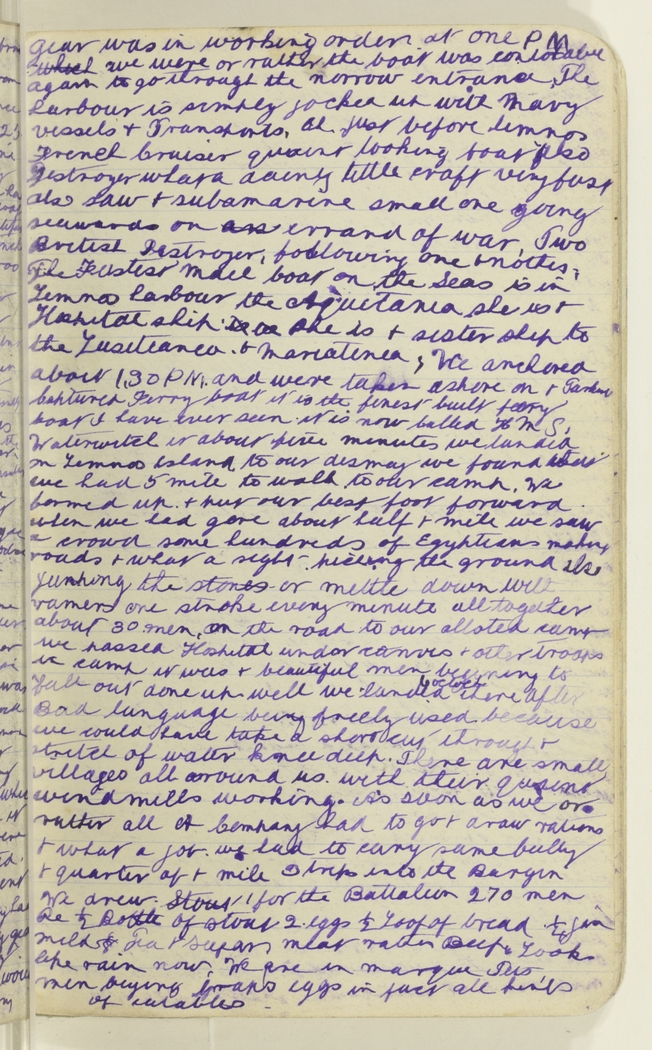 gear was in working order. at one P M
which we were or rather the boat was
again to go through the norrow entrance, The
harbour is simply jocked up with Navy
vessels + Transports, at just before Lemnos
French Cruiser quaint looking boat also
Destroyer what a dainty little craft very fast
also saw + submarine small one going
seawards on an errand of war, Two
British Destroyer, following one another,
The Fastest mail boat on the Seas is in
Lemnos harbour the Aquetanea she is +
Hospital ship. she is + sister ship to
the Lusiteanea. + Mariatinea; We anchored
about 1,30 P M, and were taken ashore on + Turkish
Captured Ferry boat it is the finest built ferry
boat I have ever seen. it is now called H M S,
Waterwitch in about five minutes we landed
on Lemnos Island to our dismay we found that
we had 5 mile to walk to our camp. We
formed up. + put our best foot forward.
when we had gone about half + mile we saw
a crowd some hundreds of Egyptians making
roads + what a sight. picking the ground also
jumping the stones or mettle down with
ramers one stroke every minute all together
about 30 men, on the road to our alloted camp
we passed Hospital under canvis + other troops
in camp it was + beautiful men beginning to
fall out done up. well we landed there after
Bad language being freely used because
we could have take a short cut through +
stretch of water knee deep. There are small
villages all around us. with their quaint
windmills working. As soon as we or
rather all A Company had to go + draw rations
+ what a job. we had to carry same bully
+ quarter of + mile 3 trips into the Bargin
We drew. Stout! for the Battalion 270 men
Re ½ Bottle of stout 2 eggs ½ Loaf of bread. ½ jim
milk & Tea + Sugar, meat rather Beef & Looks
like rain now, We are in marque This
men buying graps eggs in fact all kinds
of eatables.